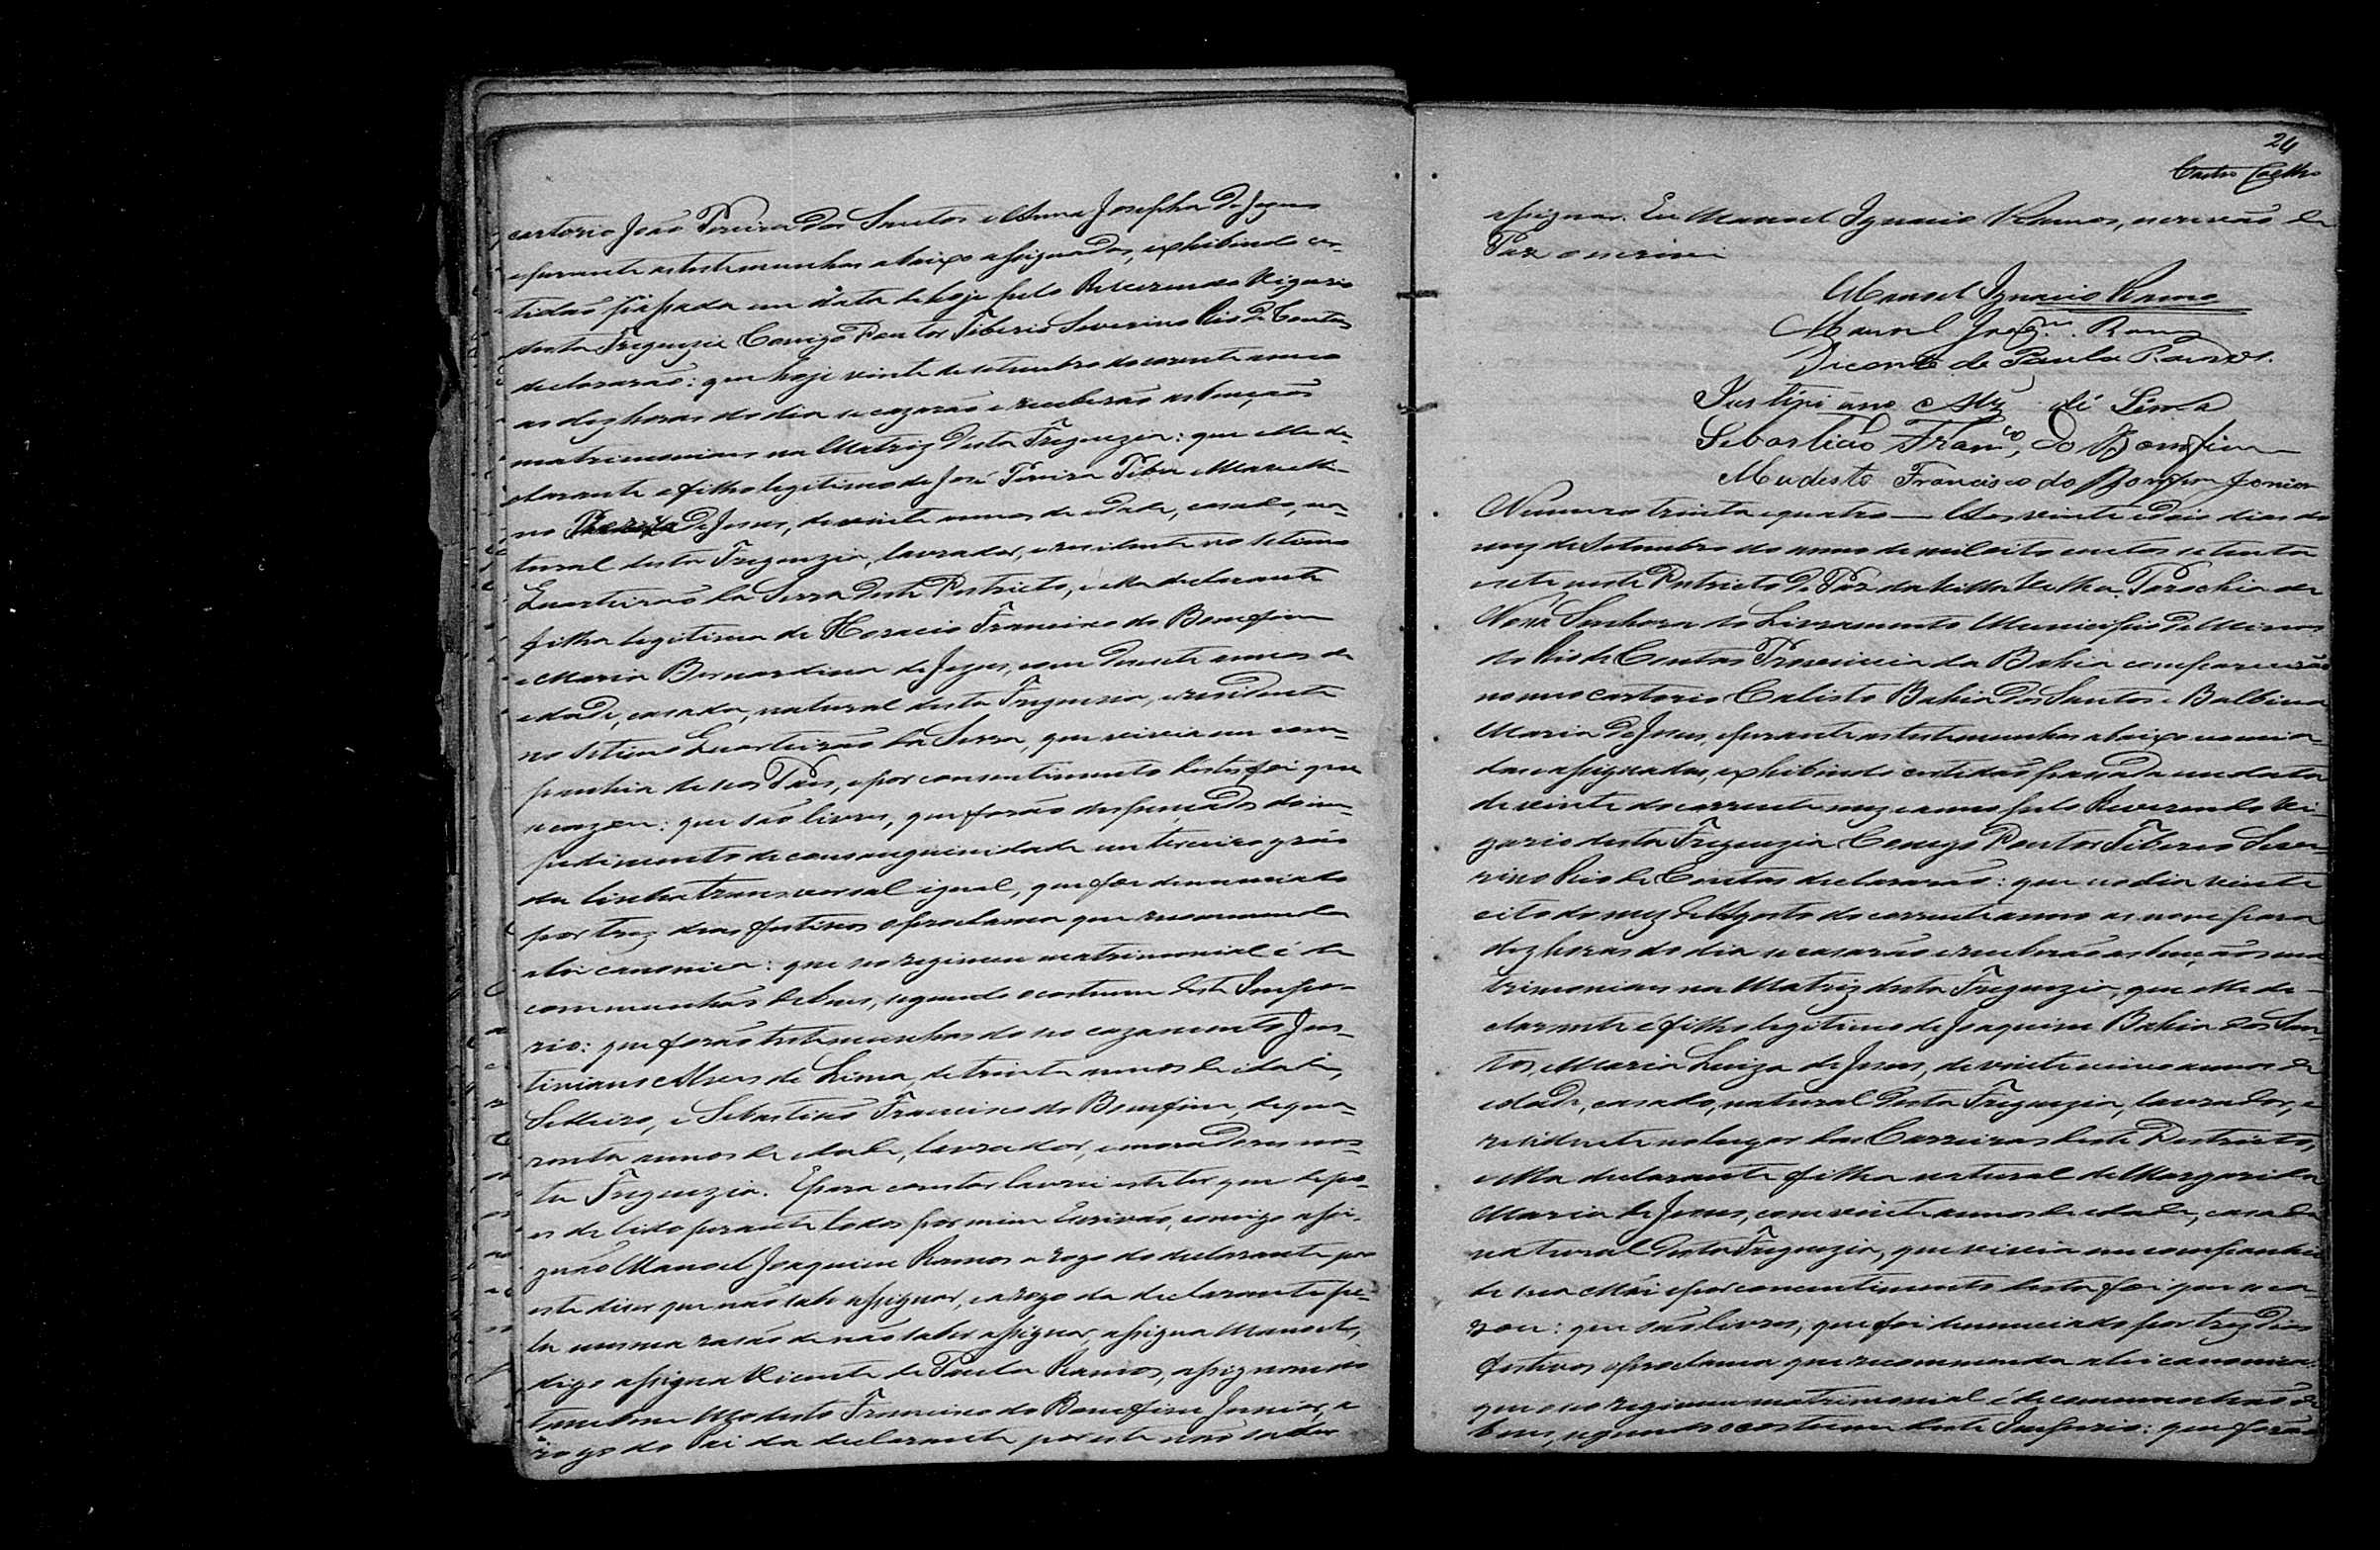 cartorio João Pereira dos Santos e Anna Josepha de Jesus
e perante as testemunhas abaixo assignadas, exhibindo cer-
tidão passada em data de hoje pelo Reverendo Vigario
desta Freguezia Conigo Doutor Tiberio Severino Rio de Contas
declararão: que hoje vinte de setembro do corrente anno
as dez horas do dia se cazarão e receberão as bençãos
matrimoniaes na Matriz desta Freguezia: que elle de-
clarante é filho legitimo de José Pereira e
no de Jesus, de vinte annos de edade, casado, na-
tural desta Freguezia, lavrador, e residente no setimo
Quarteirão da Serra deste Destricto, e ella declarante
filha legitima de Horacio Francisco do Bomfim
e Maria Bernardina de Jezus, com desesete annos de
edade, casada, natural desta Freguezia, e residente
no setimo Quarteirão da Serra, que vivia em com-
panhia de seos Paes, e por consentimento destes foi que
se cazou: que são livres, que forão despençados do im-
pedimento de consanguinidade em terceiro gráo
da linha transversal igual, que foi denunciado
por trez dias festivos o proclama que recommenda
a lei canonica: que seo regimen matrimonial é de
communhão de bens, segundo o costume deste Impe-
rio: que forão testemunhas do seo cazamento Jus-
tiniano Alves de Lima, de trinta annos de idade,
Selleiro, e Sebastião Francisco do Bomfim, de qua-
renta annos de idade, lavrador, e moradores nes-
ta Freguezia. E para constar lavrei este ter que depo-
is de lido perante todos por mim Escrivão, comigo assi-
gnão Manoel Joaquim Ramos a rogo do declarante por
este dizer que não sabe assignar, e a rogo da declarante pe-
la mesma rasão de não saber assignar, assigna Manoel,
digo assigna Vicente de Paula Ramos, assignando
tambem Modesto Francisco do Bomfim Junior, a
rogo do Pai da declarante por este não saber
24
Castro Coelho
assignar. Eu Manoel Ignacio Ramos, escrivão de
Paz o escrivi
Manoel Ignacio Ramos
Manoel Joaqm. Ramos
Vicente de Paula Ramos.
Justiniano Alvz de Lima
Sebastião Franco. do Bomfim
Mudesto Francisco do Bomfim Junior
Numero trinta e quatro — Aos vinte e dois dias do
mez de Setembro do anno de mil oito centos setenta
e sete neste Destricto de Paz da Villa Velha, Parochia de
Nossa Senhora do Livramento Municipio de Minas
do Rio de Contas Provincia da Bahia comparecerão
no meo cartorio Calisto Bahia dos Santos e Balbina
Maria de Jesus, e perante as testemunhas abaixo nomia-
das e assignadas, exhibindo certidão passada em data
de vinte do corrente mez e anno pelo Reverendo Vi-
gario desta Freguezia Conego Doutor Tiberio Seve-
rino Rio de Contas declararão: que no dia vinte
oito do mez de Agosto do corrente anno as nove para
dez horas do dia se casarão e receberão as bençãos ma
trimoniaes na Matriz desta Freguezia, que elle de-
clarante é filho legitimo de Joaquim Bahia dos San-
tos, e Maria Luiza de Jesus, de vinte e cinco annos de
edade, casado, natural desta Freguezia, lavrador, e
residente no lugar das Carreiras deste Destricto,
e ella declarante filha natural de Margarida
Maria de Jesus, com vinte annos de edade, casada
natural desta Freguezia, que vivia em companhia
de sua Mãi e por consentimento desta foi que se ca-
zou: que são livres, que foi denunciado por trez dias
festivos o proclama que recommenda a lei canonica:
que o seo regimen matrimonial é de communhão de
bens, segundo o costume deste Imperio: que forão